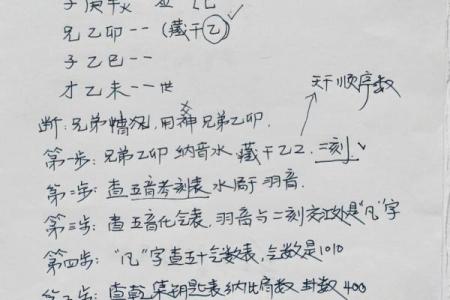 兄乙卯-- (藏干乙) ✓
子乙巳--
才乙未--世
天干顺序数
断:兄弟情况,用神兄弟乙卯.
第一步:兄弟乙卯纳音水 藏干乙2.二刻.
第二步:查五音考刻表水属于羽音.
第三步:查五音化气表,羽音与二刻交汇处是"凡"字
第四步:"凡"字查五十气数表,气数是1010
查乾集钥匙表纳比肩数 封数400